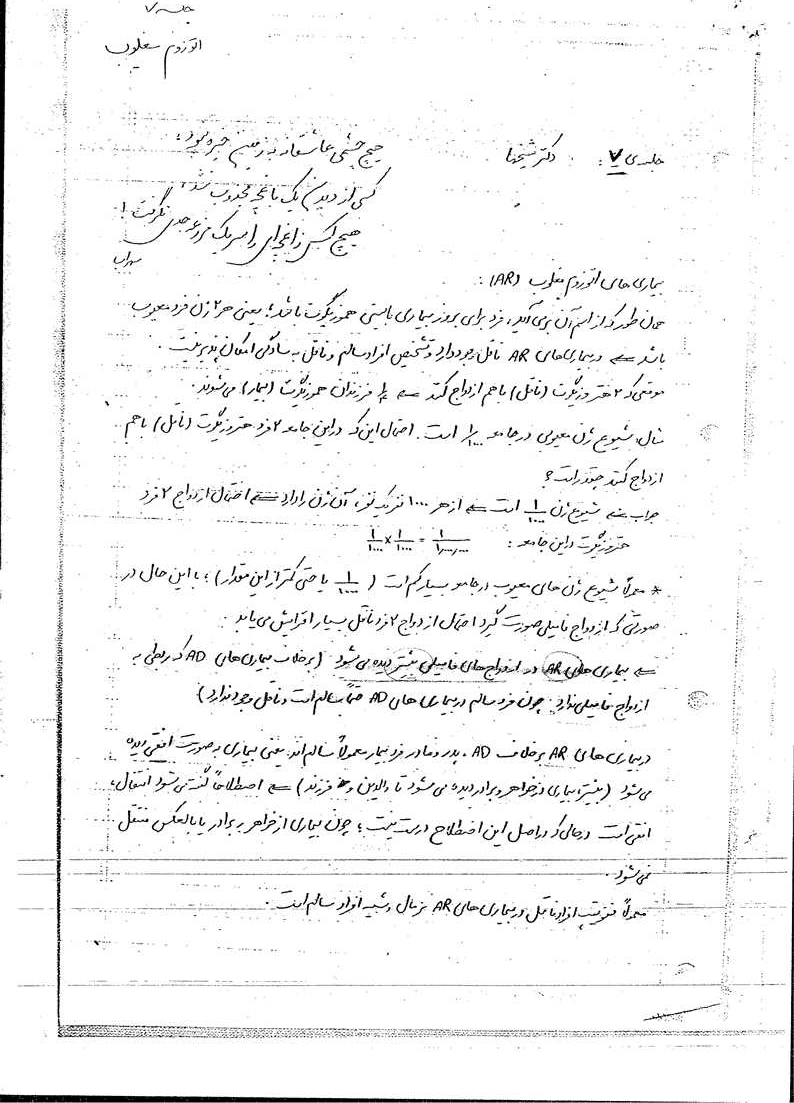 جلسه ۷
اتوزوم مغلوب
جلسه‌ی ۷: دکتر شیخها
هیچ چشمی عاشقانه به زمین خیره نبود،
کسی از دیدن یک باغچه مجذوب نشد،
هیچ کس زاغچه‌ای را سر یک مزرعه جدی نگرفت!
سهراب
بیماری های اتوزوم مغلوب (AR):
همان طور که از اسم آن بر می آید، فرد برای بروز بیماری بایستی هموزیگوت باشد؛ یعنی هر ۲ ژن فرد معیوب
باشد ⇐ در بیماری های AR ناقل وجود دارد و تشخیص افراد سالم و ناقل به سادگی امکان پذیر نیست.
موقعی که ۲ هتروزیگوت (ناقل) با هم ازدواج کنند ⇐ ¼ فرزندان هموزیگوت (بیمار) می شوند.
مثال: شیوع ژن معیوبی در جامعه ۱/۱۰۰ است. احتمال این که در این جامعه ۲ فرد هتروزیگوت (ناقل) با هم
ازدواج کنند چقدر است؟
جواب ⇐ شیوع ژن ۱/۱۰۰ است ⇐ از هر ۱۰۰ نفر یک نفر، آن ژن را دارد ⇐ احتمال ازدواج ۲ فرد
هتروزیگوت در این جامعه: ۱/۱۰۰ × ۱/۱۰۰ = ۱/۱۰۰۰۰
* معمولاً شیوع ژن های معیوب در جامعه بسیار کم است (۱/۱۰۰ یا حتی کمتر از این مقدار)؛ با این حال در
صورتی که ازدواج فامیلی صورت گیرد احتمال ازدواج ۲ فرد ناقل بسیار افزایش می یابد.
⇐ بیماری های AR در ازدواج های فامیلی بیشتر دیده می شود (برخلاف بیماری های AD که ربطی به
ازدواج فامیلی ندارد؛ چون فرد سالم در بیماری های AD حتماً سالم است و ناقل وجود ندارد)
در بیماری های AR برخلاف AD، پدر و مادر فرد بیمار معمولاً سالم اند. یعنی بیماری به صورت افقی دیده
می شود (بیشتر، بیماری در خواهر و برادر دیده می شود تا والدین و فرزند) ⇐ اصطلاحاً گفته می شود انتقال،
افقی است در حالی که در اصل این اصطلاح درست نیست؛ چون بیماری از خواهر به برادر یا بالعکس منتقل
نمی شود.
معمولاً فنوتیپ افراد ناقل در بیماری های AR نرمال و شبیه افراد سالم است.